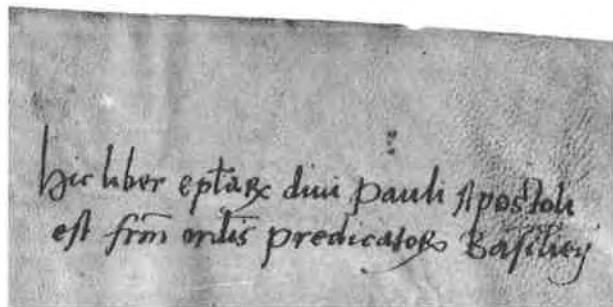 hic liber eptaꝝ diui pauli Apostoli
est frm̄ ordīs predicatoꝝ Basilieñ